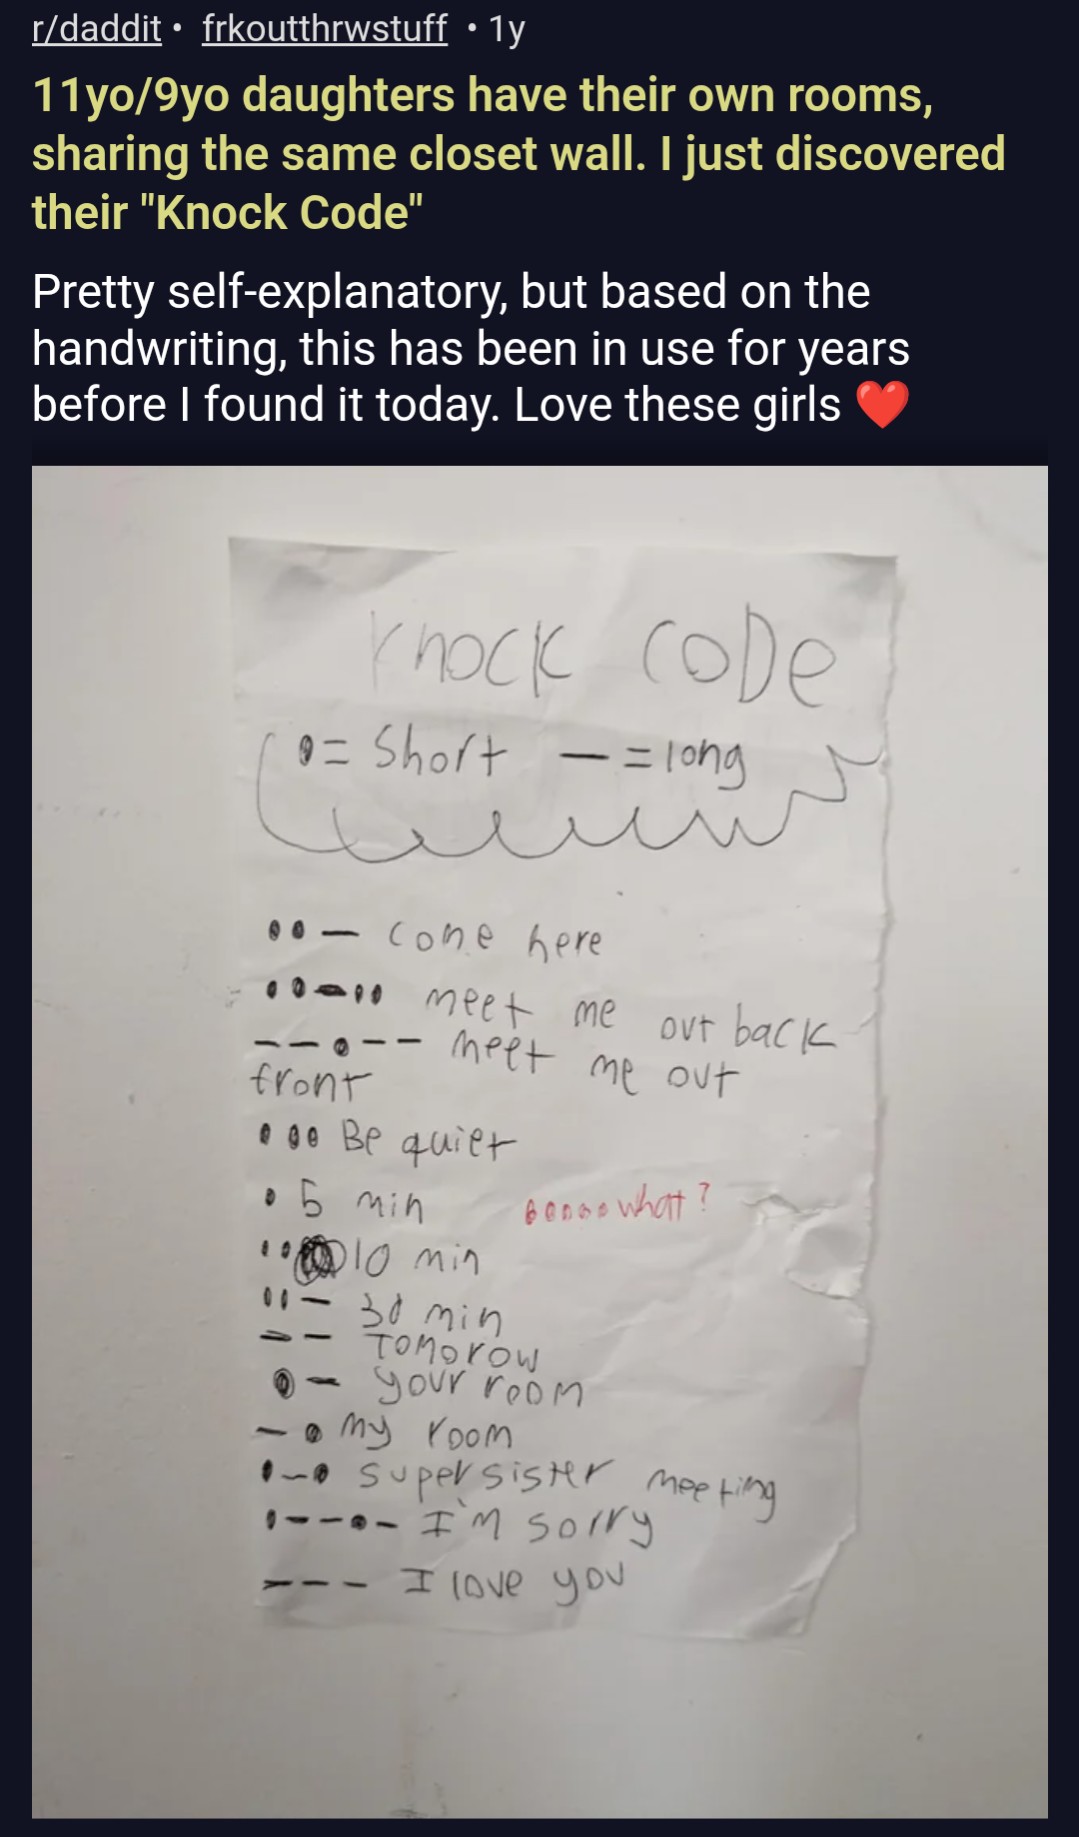 r/daddit • frkoutthrwstuff • 1y
11yo/9yo daughters have their own rooms,
sharing the same closet wall. I just discovered
their "Knock Code"
Pretty self-explanatory, but based on the
handwriting, this has been in use for years
before I found it today. Love these girls ❤️
Knock CoDe
•= Short — =long
• • — come here
• • — • • meet me out back
— — • — — meet me out
front
• • • Be quiet
• 5 min
• • • • • what?
• • 10 min
• • — 30 min
— — Tomorow
• — your room
— • my room
• — • super sister meeting
• — — • — I'm sorry
— — — I love you